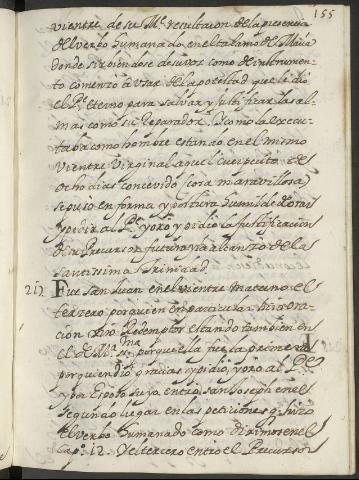 155
vientre de su Me. resultaron de la presencia
del verbo humanado en el talamo de Maria
donde sirviendose de su voz como de instrumen
to comenzo a usar de la potestad que le dio
el Pe. eterno para salvar y justificar las al
mas como su Reparador. Y como la execu
taba como hombre estando en el mismo
vientre Virginal aquel cuerpecito de
ocho dias concevido (cosa maravillosa)
se puso en forma y postura humilde de orar
y pedir al Pe. y oro y pidio la justificacion
de su Precursor futuro y la alcanzo de la
santissima Trinidad.
217 Fue san Juan en el vientre materno el
terzero por quien en particular hizo ora
cion Nro Redemptor estando tambien en
el de Ma. ssma. porque ella fue la primera
por quien dio gracias y pidio, y oro al Pe.
y por Esposo suyo entro san Joseph en el
segundo lugar en las peticiones q. hizo
el verbo humanado como dixímos en el
Cap. 12. Y el tercero entro el Precursor